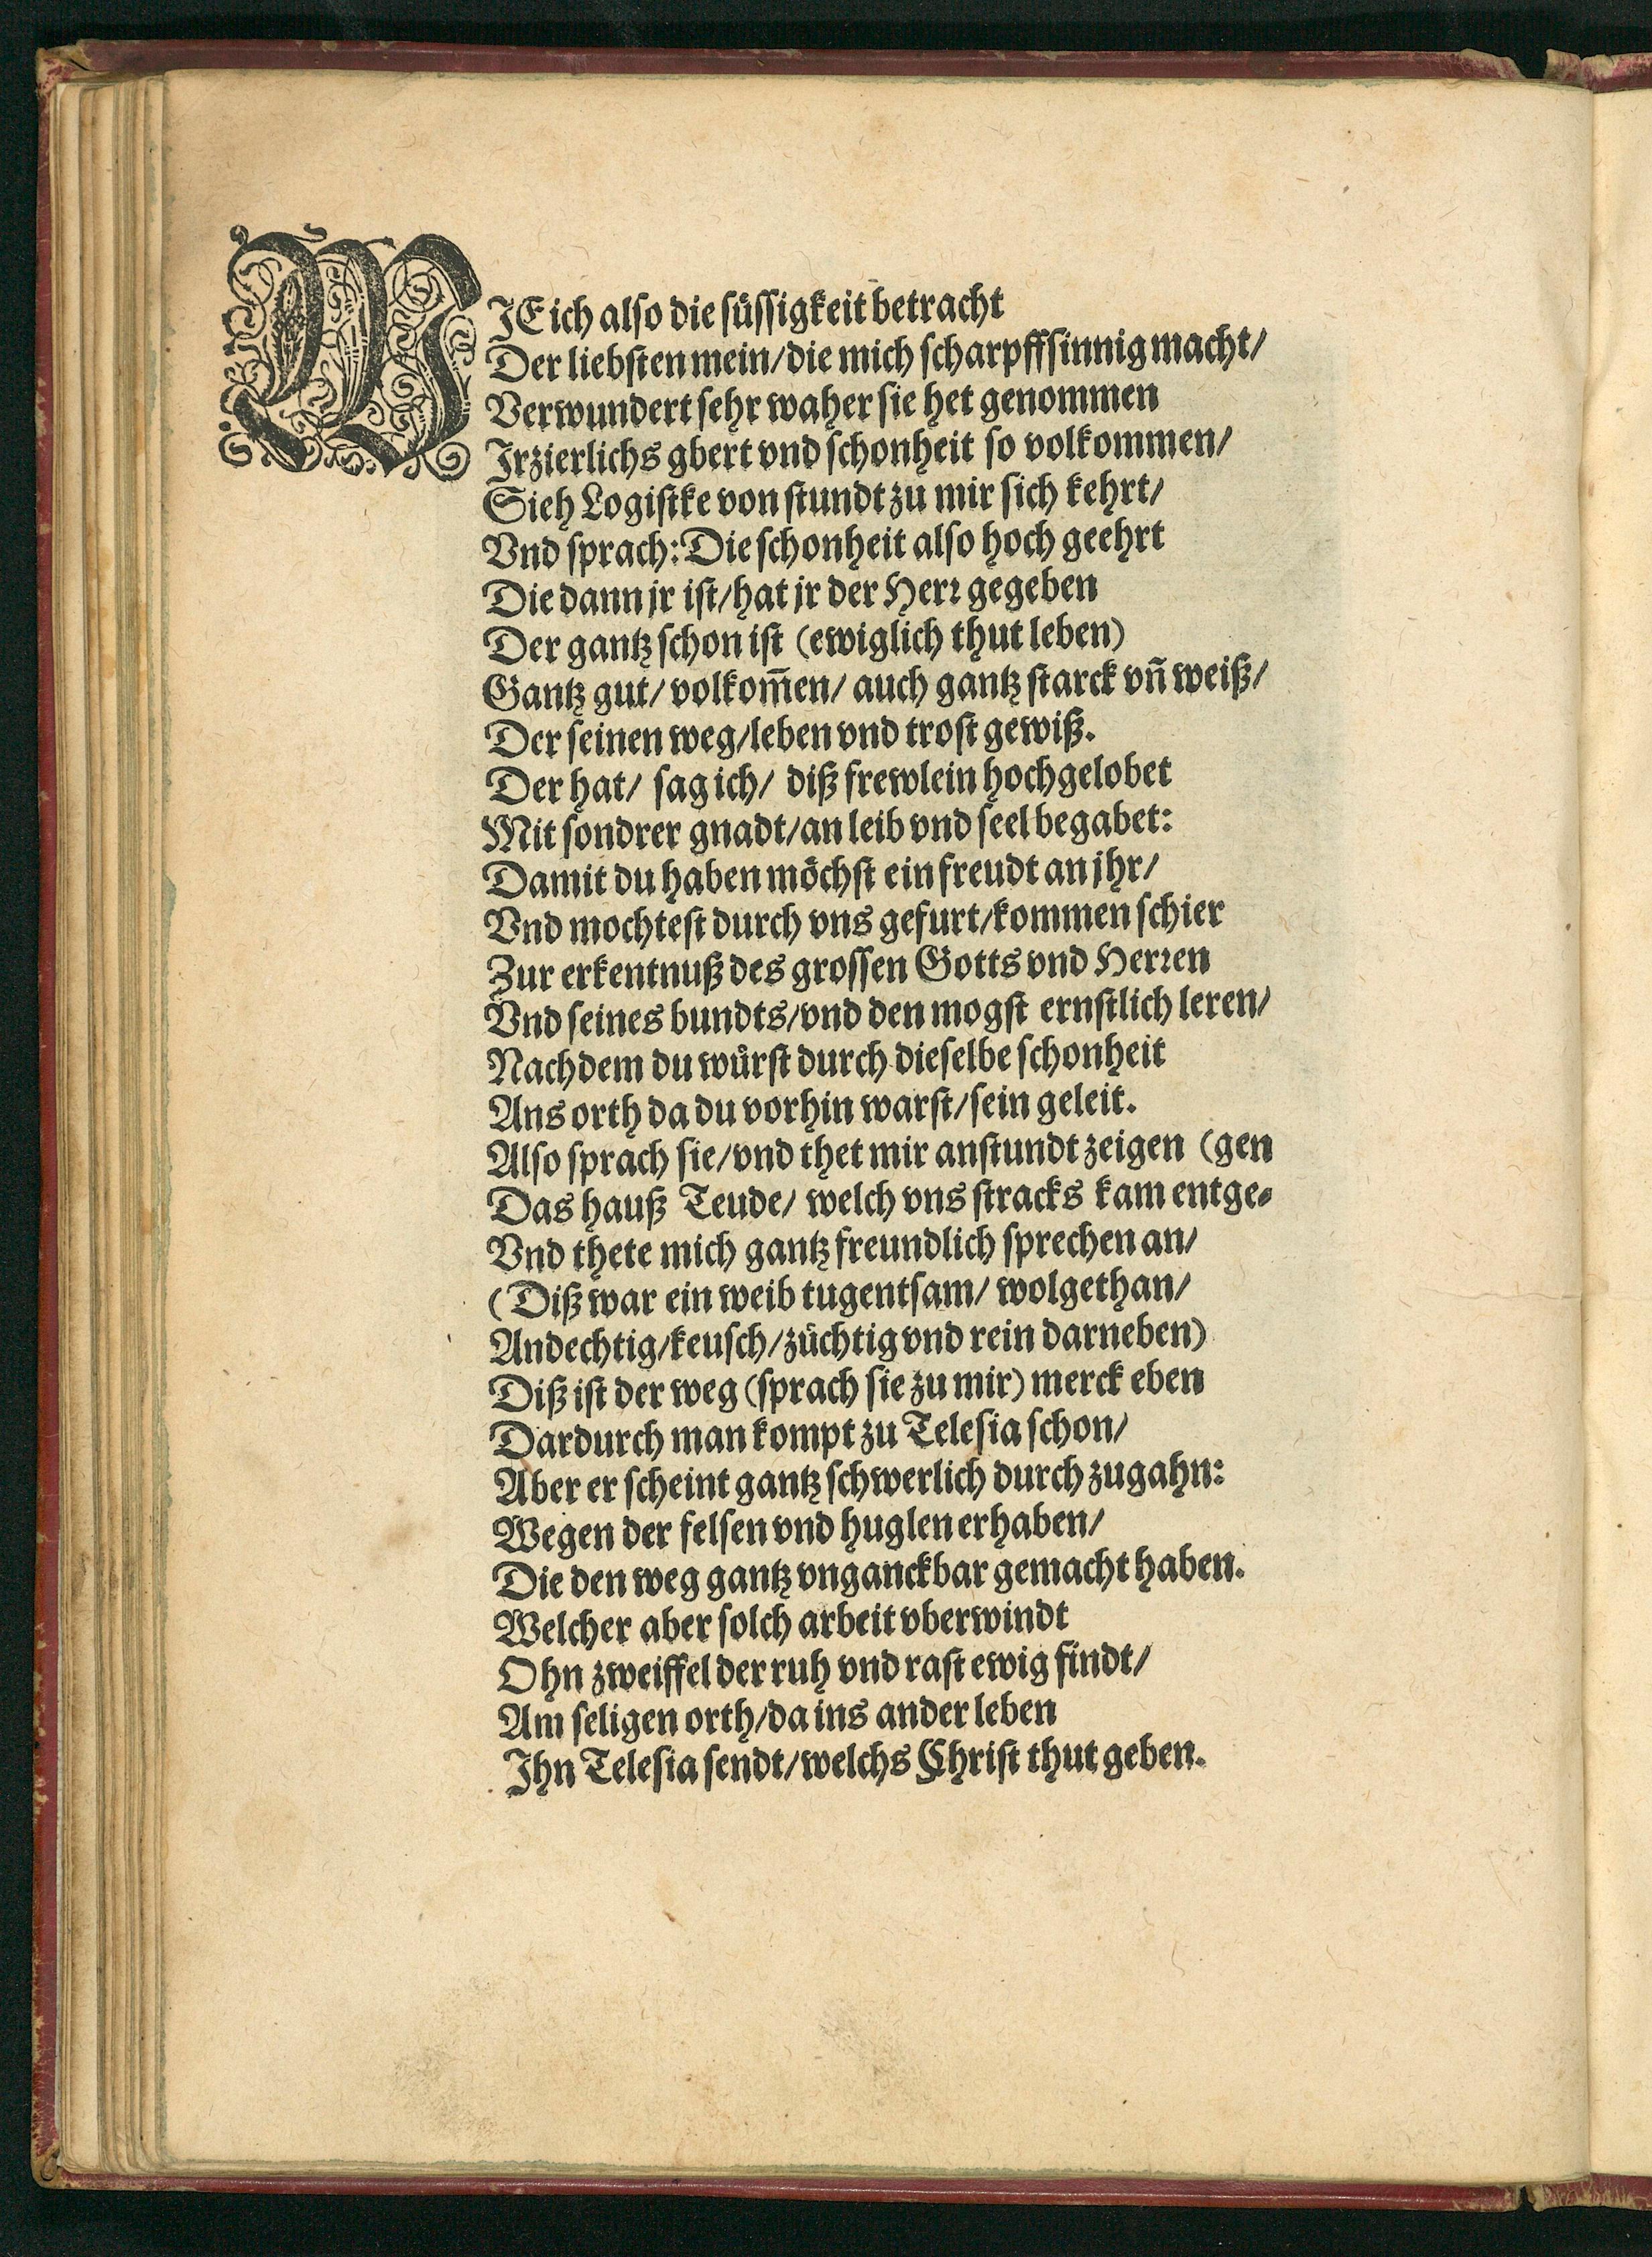 WJE ich also die süssigkeit betracht
Der liebsten mein/ die mich scharpffsinnig macht/
Verwundert sehr waher sie het genommen
Jr zierlichs gbert vnd schonheit so volkommen/
Sieh Logistke von stundt zu mir sich kehrt/
Vnd sprach: Die schonheit also hoch geehrt
Die dann jr ist/ hat jr der Herr gegeben
Der gantz schon ist (ewiglich thut leben)
Gantz gut/ volkom̃en/ auch gantz starck vñ weiß/
Der seinen weg/ leben vnd trost gewiß.
Der hat/ sag ich/ diß frewlein hochgelobet
Mit sondrer gnadt/ an leib vnd seel begabet:
Damit du haben möchst ein freudt an jhr/
Vnd mochtest durch vns gefurt/ kommen schier
Zur erkentnuß des grossen Gotts vnd Herren
Vnd seines bundts/ vnd den mogst ernstlich leren/
Nachdem du würst durch dieselbe schonheit
Ans orth da du vorhin warst/ sein geleit.
Also sprach sie/ vnd thet mir anstundt zeigen (gen
Das hauß Teude/ welch vns stracks kam entge-
Vnd thete mich gantz freundlich sprechen an/
(Diß war ein weib tugentsam/ wolgethan/
Andechtig/ keusch/ züchtig vnd rein darneben)
Diß ist der weg (sprach sie zu mir) merck eben
Dardurch man kompt zu Telesia schon/
Aber er scheint gantz schwerlich durch zugahn:
Wegen der felsen vnd huglen erhaben/
Die den weg gantz vnganckbar gemacht haben.
Welcher aber solch arbeit vberwindt
Ohn zweiffel der ruh vnd rast ewig findt/
Am seligen orth/ da ins ander leben
Jhn Telesia sendt/ welchs Christ thut geben.